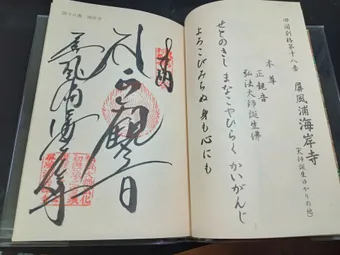 四国別格第十八番
屏風浦海岸寺
(大師誕生ゆかりの地)
本尊
正観音
弘法大師誕生佛
せとのきし まなこやひらく かいがんじ
よろこびみちぬ 身も心にも
奉納
正観音
屏風浦海岸寺